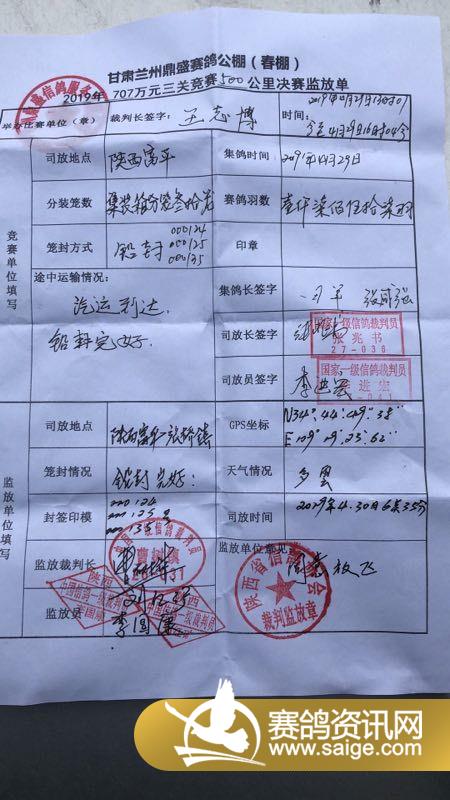 甘肃兰州鼎盛赛鸽公棚（春棚）
2019年707万元三关竞赛500公里决赛监放单
举办比赛单位（章）
裁判长签字：王志博
时间：
竞赛单位填写
司放地点 陕西富平
集鸽时间 2019年4月29日
分装笼数 集装箱分装叁拾笼
赛鸽羽数 壹仟柒佰伍拾柒羽
笼封方式 铅封 000124
000125
000135
印章
途中运输情况：
汽运到达
铅封完好.
集鸽长签字
司放长签字
国家一级信鸽裁判员
张兆书
27-036
司放员签字 李进宏
国家一级信鸽裁判员
监放单位填写
司放地点 陕西富平张桥镇
GPS坐标 N34°.44'.49".38"
E109°.19'.23".62"
笼封情况 铅封完好.
天气情况 多云
封签印模
司放时间 2019年4.30日6点35分
监放裁判长
监放单位意见：
同意放飞
陕西省信鸽协会
裁判监放章
监放员
中国信鸽一级裁判员
赛鸽资讯网
www.saige.com